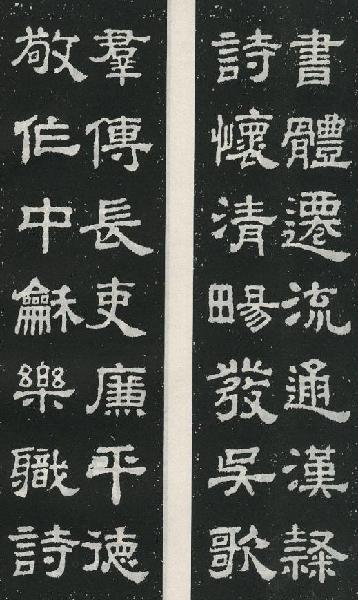 書體遷流通漢隸
詩懷清暘發吳歌
羣傳長吏廉平德
敬作中龢樂職詩